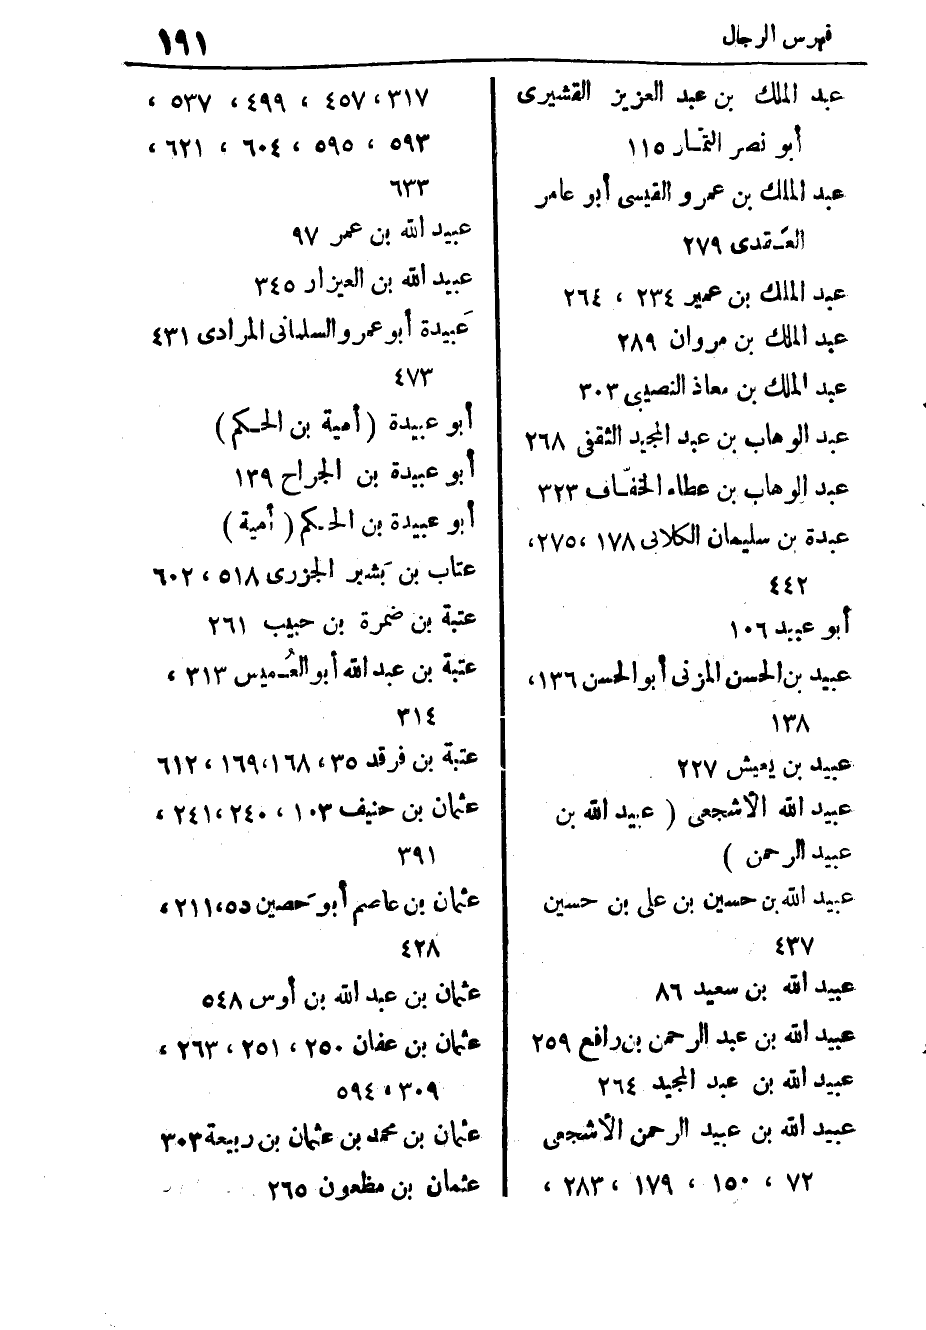 فهرس الرجال ١٩١
عبد الملك بن عبد العزيز القشيرى
أبو نصر التمّار ١١٥
عبد الملك بن عمرو القيسى أبو عامر
العَقدى ٢٧٩
عبد الملك بن عمير ٢٣٤ ، ٢٦٤
عبد الملك بن مروان ٢٨٩
عبد الملك بن معاذ النصيبى ٣٠٣
عبد الوهاب بن عبد المجيد الثقفى ٢٦٨
عبد الوهاب بن عطاء الخفّاف ٣٢٣
عبدة بن سليمان الكلابى ١٧٨ ،٢٧٥،
٤٤٢
أبو عبيد ١٠٦
عبيد بن الحسن المزنى أبو الحسن ١٣٦،
١٣٨
عبيد بن يعيش ٢٢٧
عبيد الله الأشجعى ( عبيد الله بن
عبيد الرحمن )
عبيد الله بن حسين بن على بن حسين
٤٣٧
عبيد الله بن سعيد ٨٦
عبيد الله بن عبد الرحمن بن رافع ٢٥٩
عبيد الله بن عبد المجيد ٢٦٤
عبيد الله بن عبيد الرحمن الأشجعى
٧٢ ، ١٥٠ ، ١٧٩ ، ٢٨٣ ،
٣١٧ ، ٤٥٧ ، ٤٩٩ ، ٥٣٧ ،
٥٩٣ ، ٥٩٥ ، ٦٠٤ ، ٦٢١ ،
٦٣٣
عبيد الله بن عمر ٩٧
عبيد الله بن العيزار ٣٤٥
عَبيدة أبو عمرو السلمانى المرادى ٤٣١
٤٧٣
أبو عبيدة ( أمية بن الحكم )
أبو عبيدة بن الجراح ١٣٩
أبو عبيدة بن الحكم ( أمية )
عتاب بن بَشير الجزرى ٥١٨ ، ٦٠٢
عتبة بن ضمرة بن حبيب ٢٦١
عتبة بن عبد الله أبو العُميس ٣١٣ ،
٣١٤
عتبة بن فرقد ٣٥ ، ١٦٨ ،١٦٩ ، ٦١٢
عثمان بن حنيف ١٠٣ ، ٢٤٠ ،٢٤١ ،
٣٩١
عثمان بن عاصم أبو حَصين ٥٥ ،٢١١ ،
٤٢٨
عثمان بن عبد الله بن أوس ٥٤٨
عثمان بن عفان ٢٥٠ ، ٢٥١ ، ٢٦٣ ،
٣٠٩ ، ٥٩٤
عثمان بن محمد بن عثمان بن ربيعة ٣٠٣
عثمان بن مظعون ٢٦٥